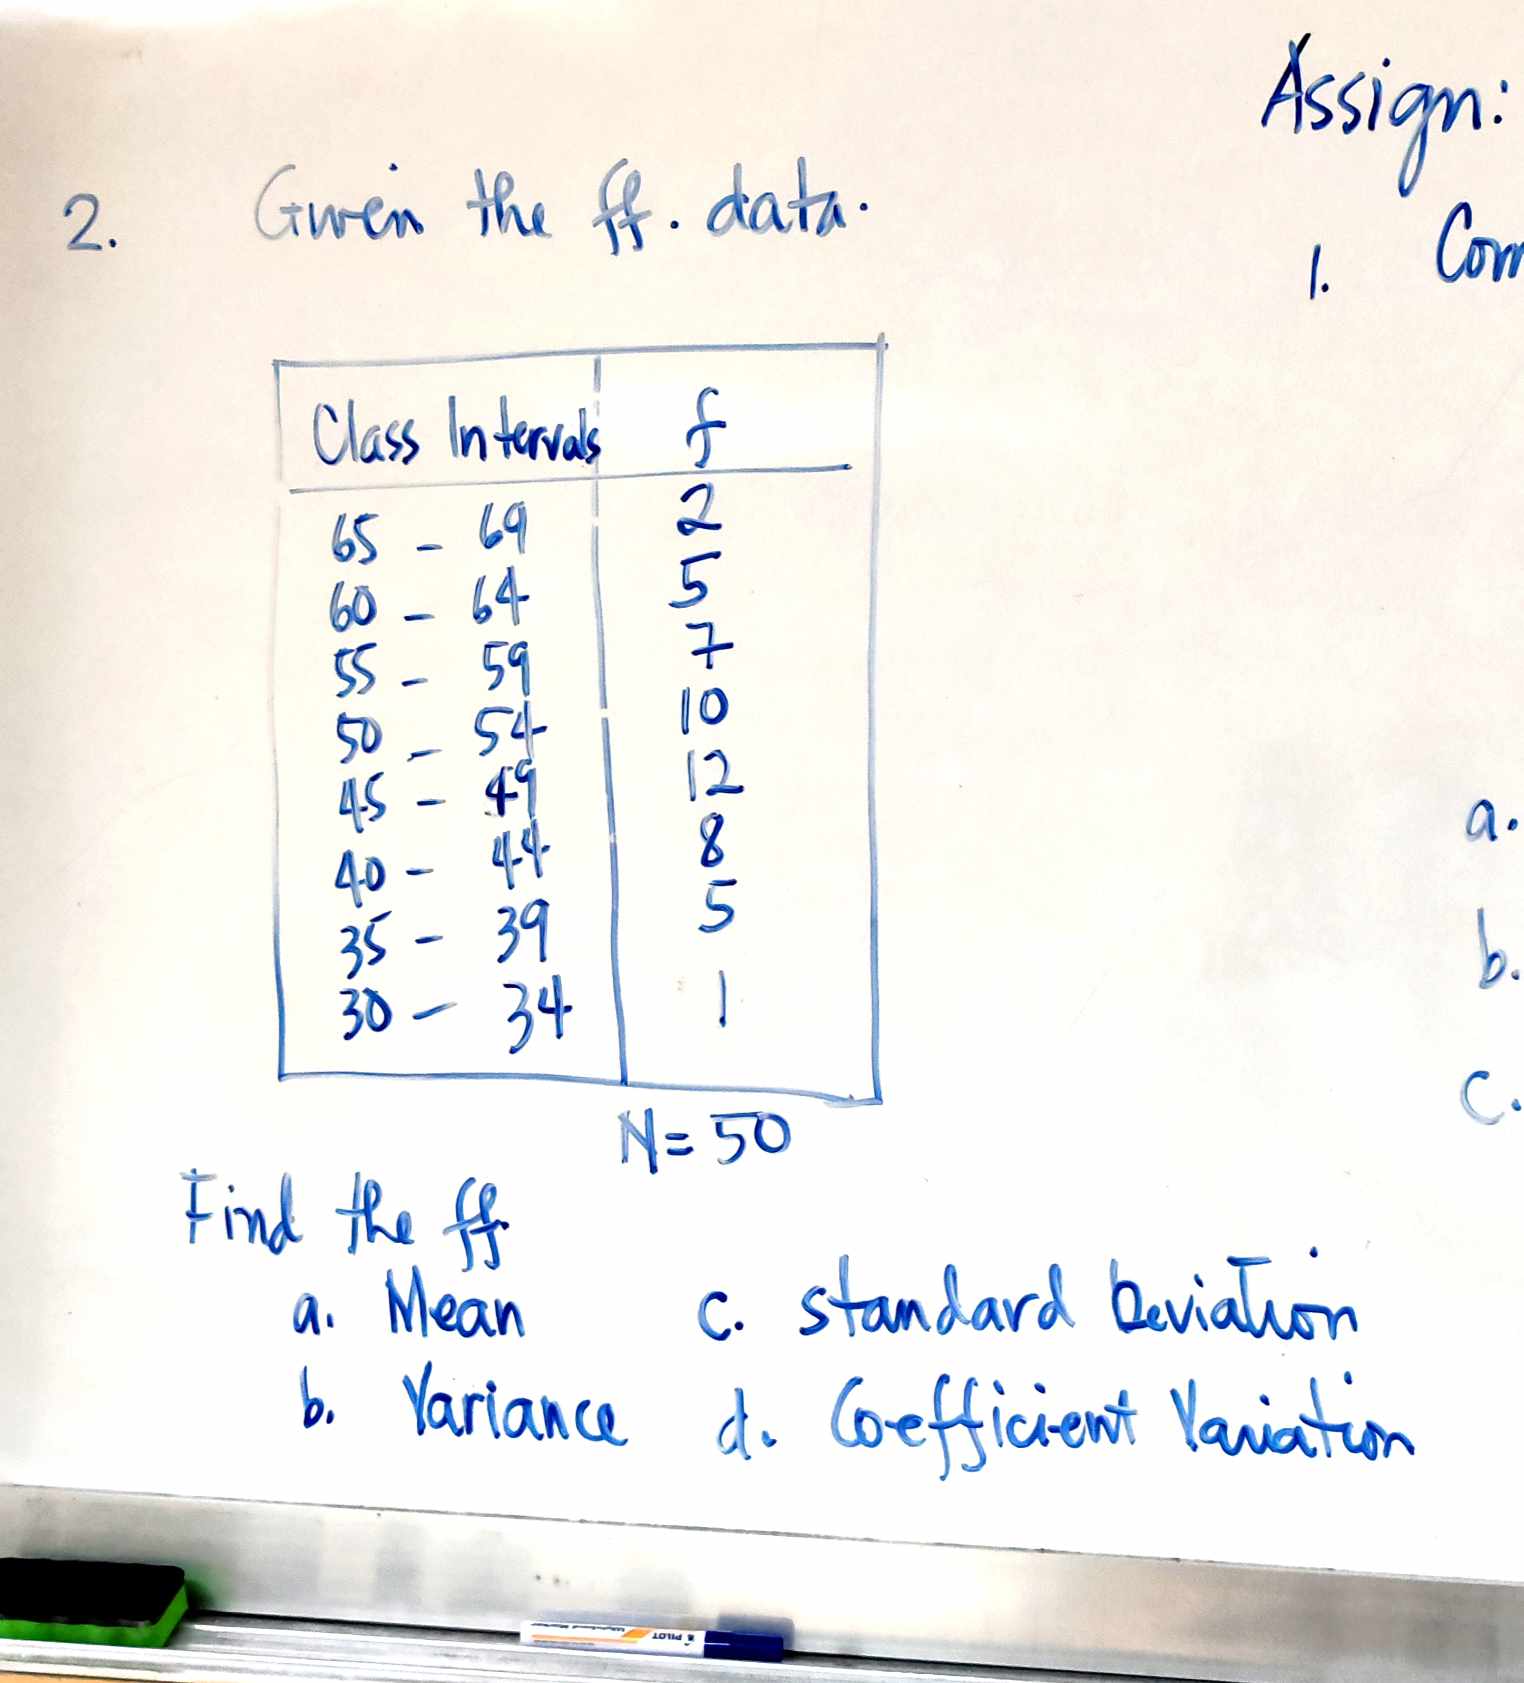 Assign:
2. Given the ff. data.
1. Com
Class Intervals f
65 - 69 2
60 - 64 5
55 - 59 7
50 - 54 10
45 - 49 12
40 - 44 8
35 - 39 5
30 - 34 1
N = 50
a.
b.
c.
Find the ff.
a. Mean c. standard Deviation
b. Variance d. Coefficient Variation
PILOT